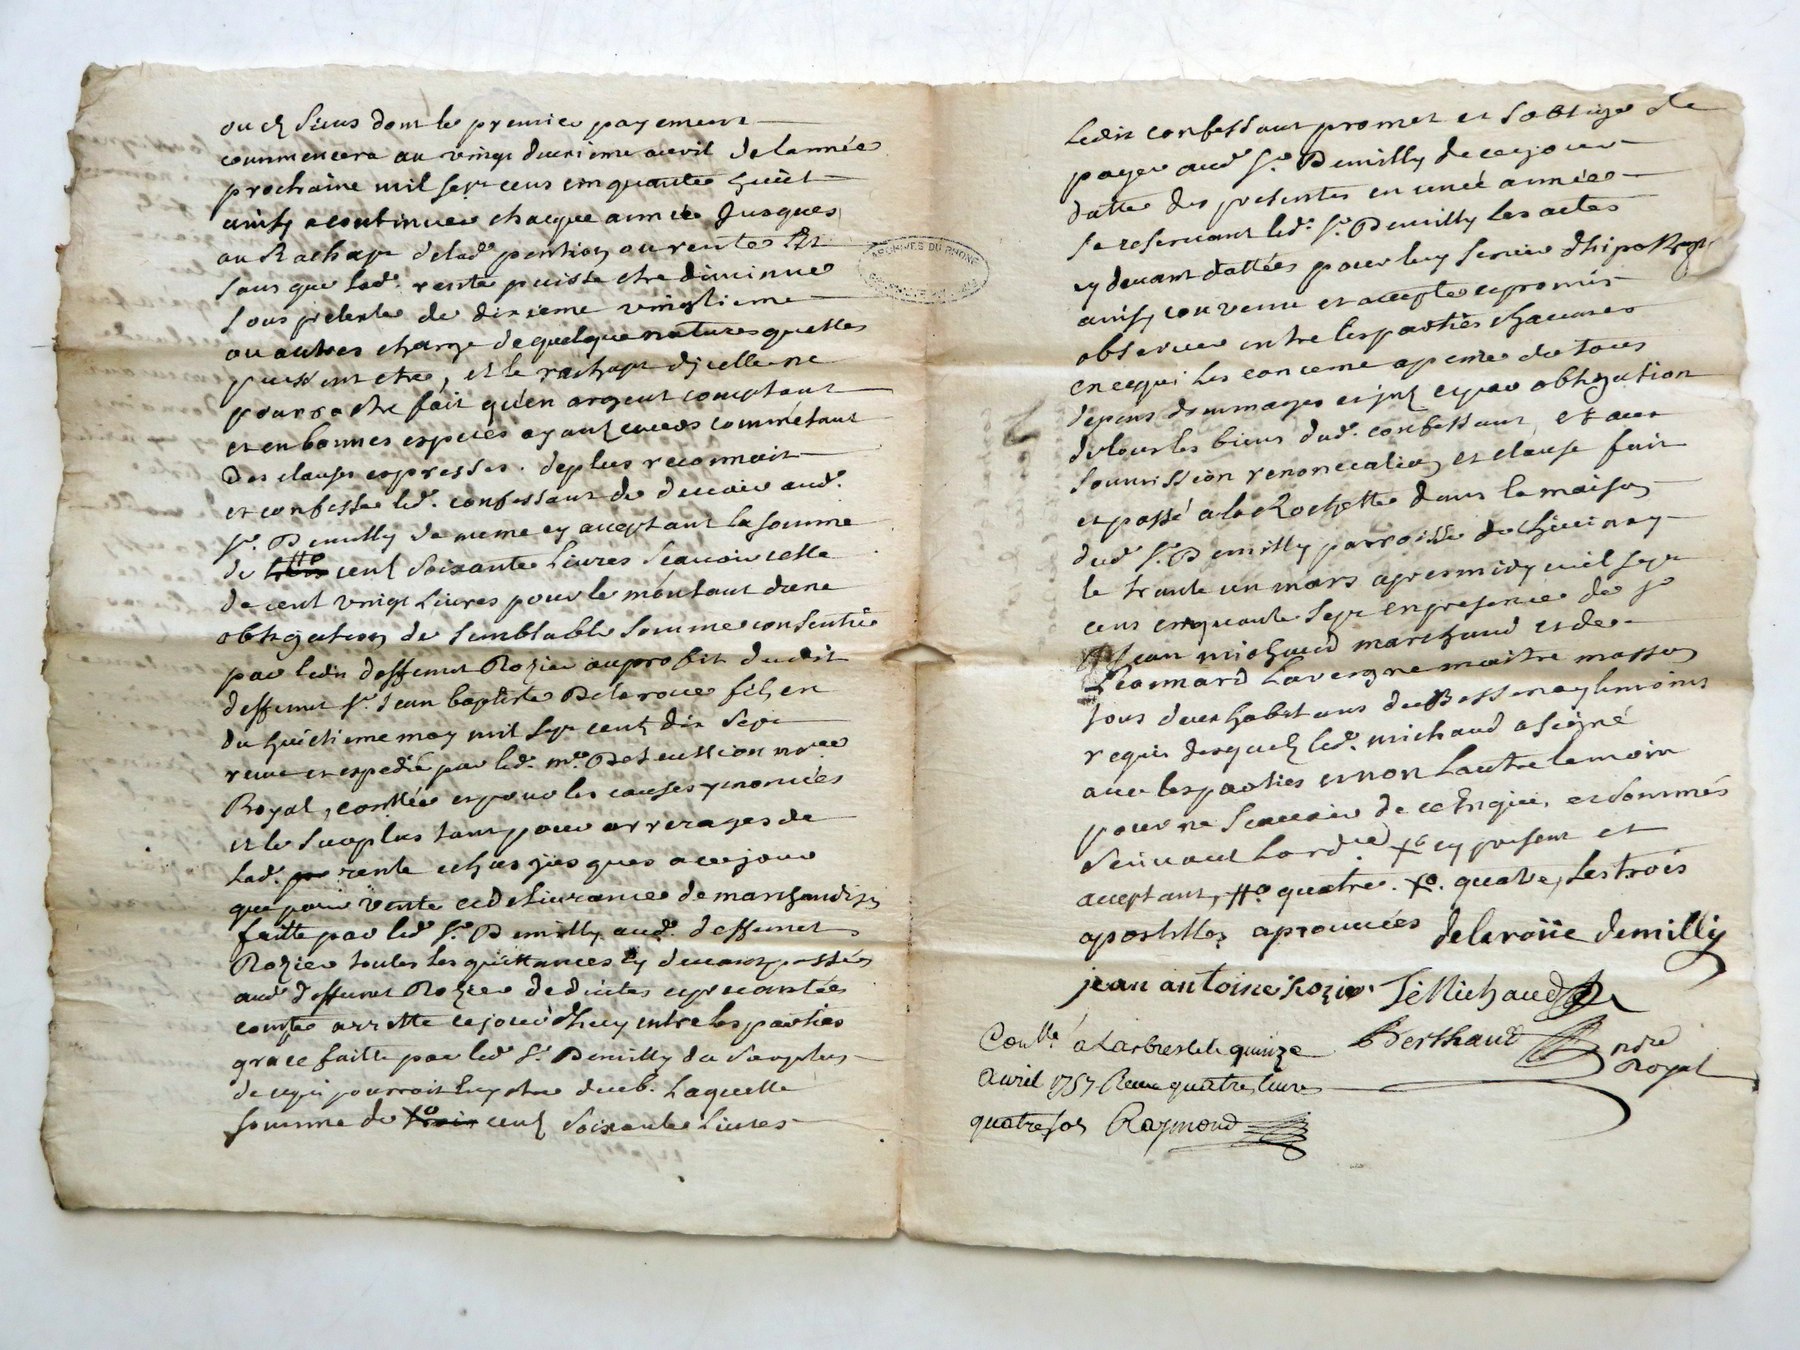 ou es siens dont le premier payement
commencera au vingt deuxieme avril de lannée
prochaine mil sept cens cinquante huit
ainsy acontinuer chacque année Jusques
au Rachapt delad. pention ou rente Et
sans que lad. rente puisse etre diminuee
sous pretexte de dixieme vingtieme
ou autres charge de quelque natures quelles
puissent etre, et le rachapt dicelle ne
pourra etre fait qu'en argent comptant
et en bonnes especes ayant cours
des clauses expresses. deplus reconnait
et confesse led. confessant de devoir aud.
Sr. Demilly de meme cy acceptant la somme
de cent soixante livres scavoir celle
de cent vingt livres pour le montant dune
obligation de semblable somme consentie
par ledit deffunt Rozier au profit dudit
deffunt Sr. Jean baptiste Delaroue fils en
du huitieme may mil sept cent dix sept
reçue et expediée par led. me. not.re
Royal, conllée et pour les causes y enoncées
et le surplus tant pour arrerages de
lad. rente echus jusques a ce jour
que pour vente et delivrance de marchandises
faitte par led. Sr. Demilly aud. deffunt
Rozier toutes les quittances cy devant passées
aud. deffunt Rozier deduites et precomptées
compte arretté cejourdhuy entre les parties
grace faitte par led. Sr. Demilly du surplus
de ce qui pourroit luy etre deub. Laquelle
somme de cent soixante livres
Ledit confessant promet et soblige de
payer aud. Sr. Demilly de ce jour
datte des presentes en une année
se reservant led. Sr. Demilly les actes
cy devant dattées pour luy servir dhipoteque
ainsy convenu et accepté et promis
observer entre les parties chacunes
en ce qui les concerne a peine de tous
depens dommages et int. et par obligation
de tous les biens dud. confessant, et avec
soumission renonciation et clause fait
et passé a la Rochette dans la maison
dud. Sr. Demilly parroisse de Chivinay
le trante un mars apres midy mil sept
cens cinquante sept en presence de Sr
Jean michaud marchand et de
Leonnard Lavergne maitre masson
tous deux habitans de Bessenay temoins
requis desquels led. michaud a signé
avec les parties et non lautre temoin
pour ne scavoir de ce enquis et sommés
suivant Lord.ce cy present et
acceptant, quatre. quatre, les trois
apostilles aprouvées delaroüe demilly
jean antoine rozier J Michaud
Berthaud
ndre
Royal
Conllé a Larbresle le quinze
avril 1757 Reçu quatre livres
quatre sols Raymond
ARCHIVES DU RHONE